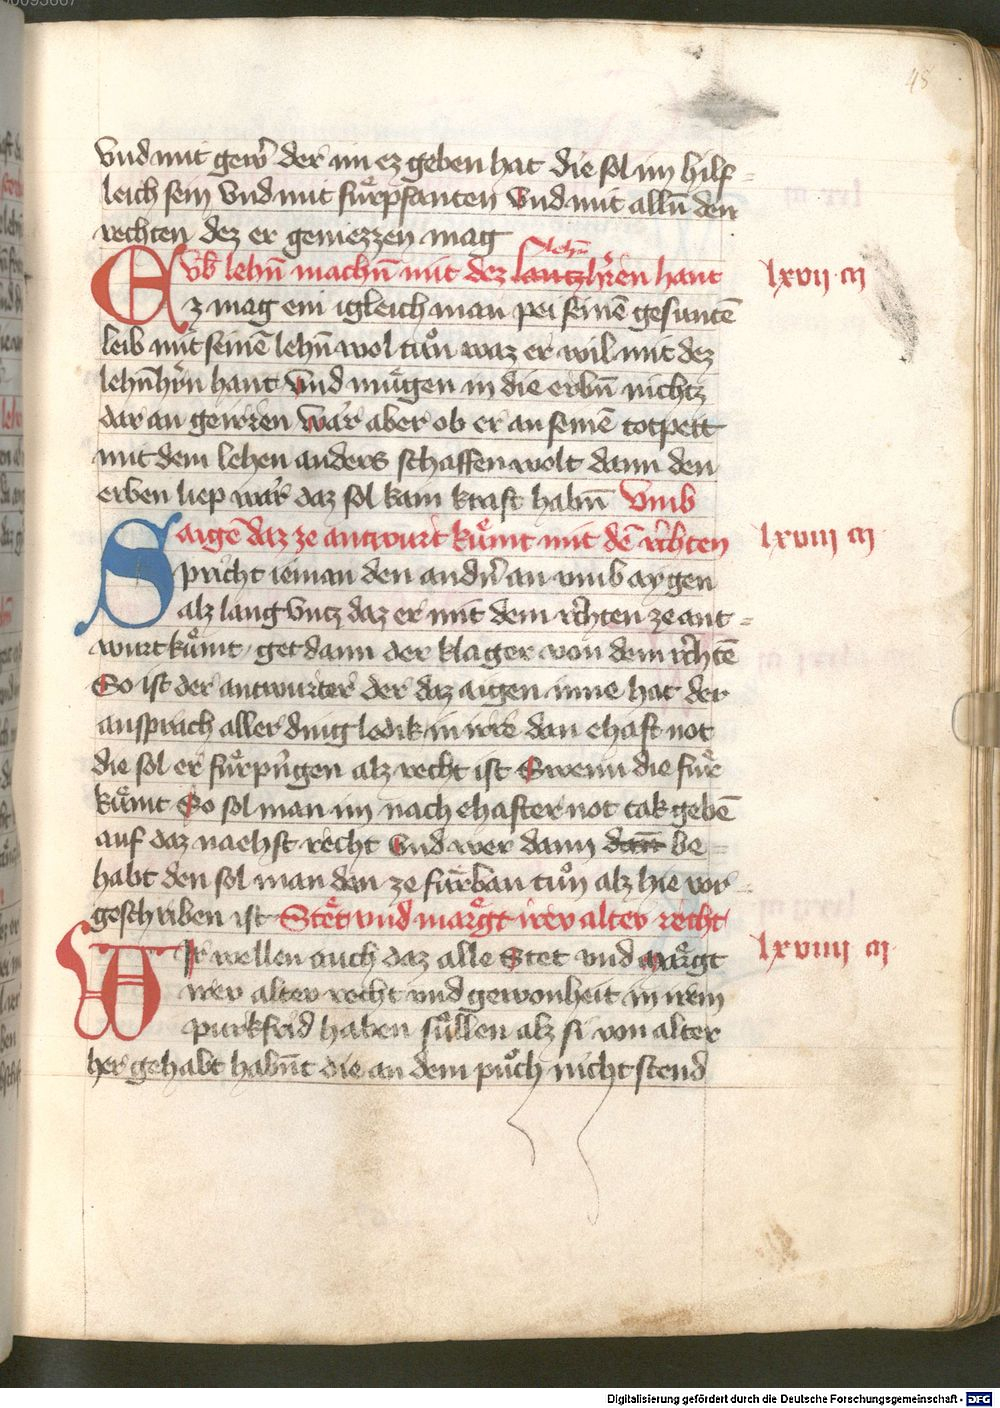 48
vnd mit gewͤr der im ez geben hat die sol im hilf=
leich sein vnd mit fuͤrpfanten vnd mit alln̄ den
rechten dez er geniezzen mag
Vb lehn̄ machn̄ mit dez lantzhr̄ren hant lxvii ar̄
lehn̄
Ez mag ein igleich man pei seinē gesuntē
leib mit seinē lehn̄ wol tuͦn waz er wil mit dez
lehn̄hr̄n hant vnd muͤgen in die erbn̄ nichtz
dar an gewrren waͤr aber ob er an seinē totpett
mit dem lehen anders schaffen wolt dann den
erben liep waͤr daz sol kain kraft habn̄ Vmb
aigē daz ze antwurt kuͤmt mit dē rechten lxviii ar̄
Spricht ieman den andn̄ an vmb aygen
alz lang vntz daz er mit dem rechten ze ant=
wurt kuͤmt / get dann der klager von dem rechtē
So ist der antwurter der daz aigen inne hat der
ansprach aller ding ledik in irre dan ehaft not
die sol er fuͤrpringen alz recht ist Swenn die fuͤr
kuͤmt So sol man im nach ehafter not tak gebē
auf daz naehst recht vnd wer dann dan̄ be=
habt den sol man dan ze fuͤrban tuͦn alz hie vor
geschriben ist Stet vnd maͤrgt irev altev recht
Wir wellen auch daz alle Stet vnd maͤrgt lxviiii ar̄
irev altev recht vnd gewonheit in irem
purkfrid haben suͤllen alz si von alter
her gehabt habn̄t die an dem puͦch nicht stend
Digitalisierung gefördert durch die Deutsche Forschungsgemeinschaft - DFG